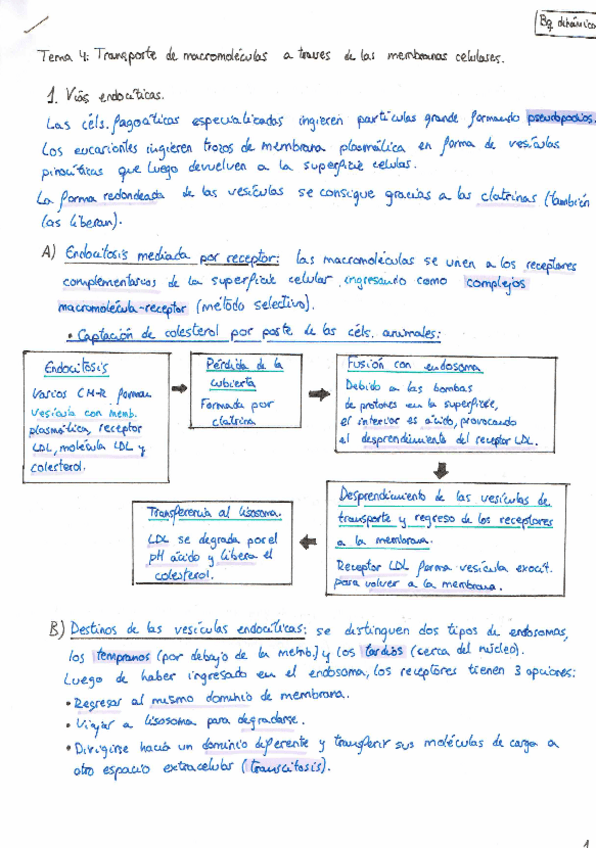 Bq dinámica
Tema 4: Transporte de macromoléculas a traves de las membranas celulares.
1. Vías endocíticas.
Las céls. fagocíticas especializadas ingieren partículas grande formando pseudopodios.
Los eucariontes ingieren trozos de membrana plasmática en forma de vesículas
pinocíticas que luego devuelven a la superficie celular.
La forma redondeada de las vesículas se consigue gracias a las clatrinas (también
las liberan).
A) Endocitosis mediada por receptor: las macromoléculas se unen a los receptores
complementarios de la superficie celular, ingresando como complejos
macromolécula-receptor (método selectivo).
• Captación de colesterol por parte de las céls. animales:
Endocitosis
Varios CM-R forman
vesícula con memb.
plasmática, receptor
LDL, molécula LDL y
colesterol.
Pérdida de la
cubierta
Formada por
clatrina
Fusión con endosoma
Debido a las bombas
de protones en la superficie,
el interior es ácido, provocando
el desprendimiento del receptor LDL.
Desprendimiento de las vesículas de
transporte y regreso de los receptores
a la membrana.
Receptor LDL forma vesícula exocit.
para volver a la membrana.
Transferencia al lisosoma.
LDL se degrada por el
pH ácido y libera el
colesterol.
B) Destinos de las vesículas endocíticas: se distinguen dos tipos de endosomas,
los tempranos (por debajo de la memb.) y los tardíos (cerca del núcleo).
Luego de haber ingresado en el endosoma, los receptores tienen 3 opciones:
• Regresar al mismo dominio de membrana.
• Viajar a lisosoma para degradarse.
• Dirigirse hacia un dominio diferente y transferir sus moléculas de carga a
otro espacio extracelular (transcitosis).
1